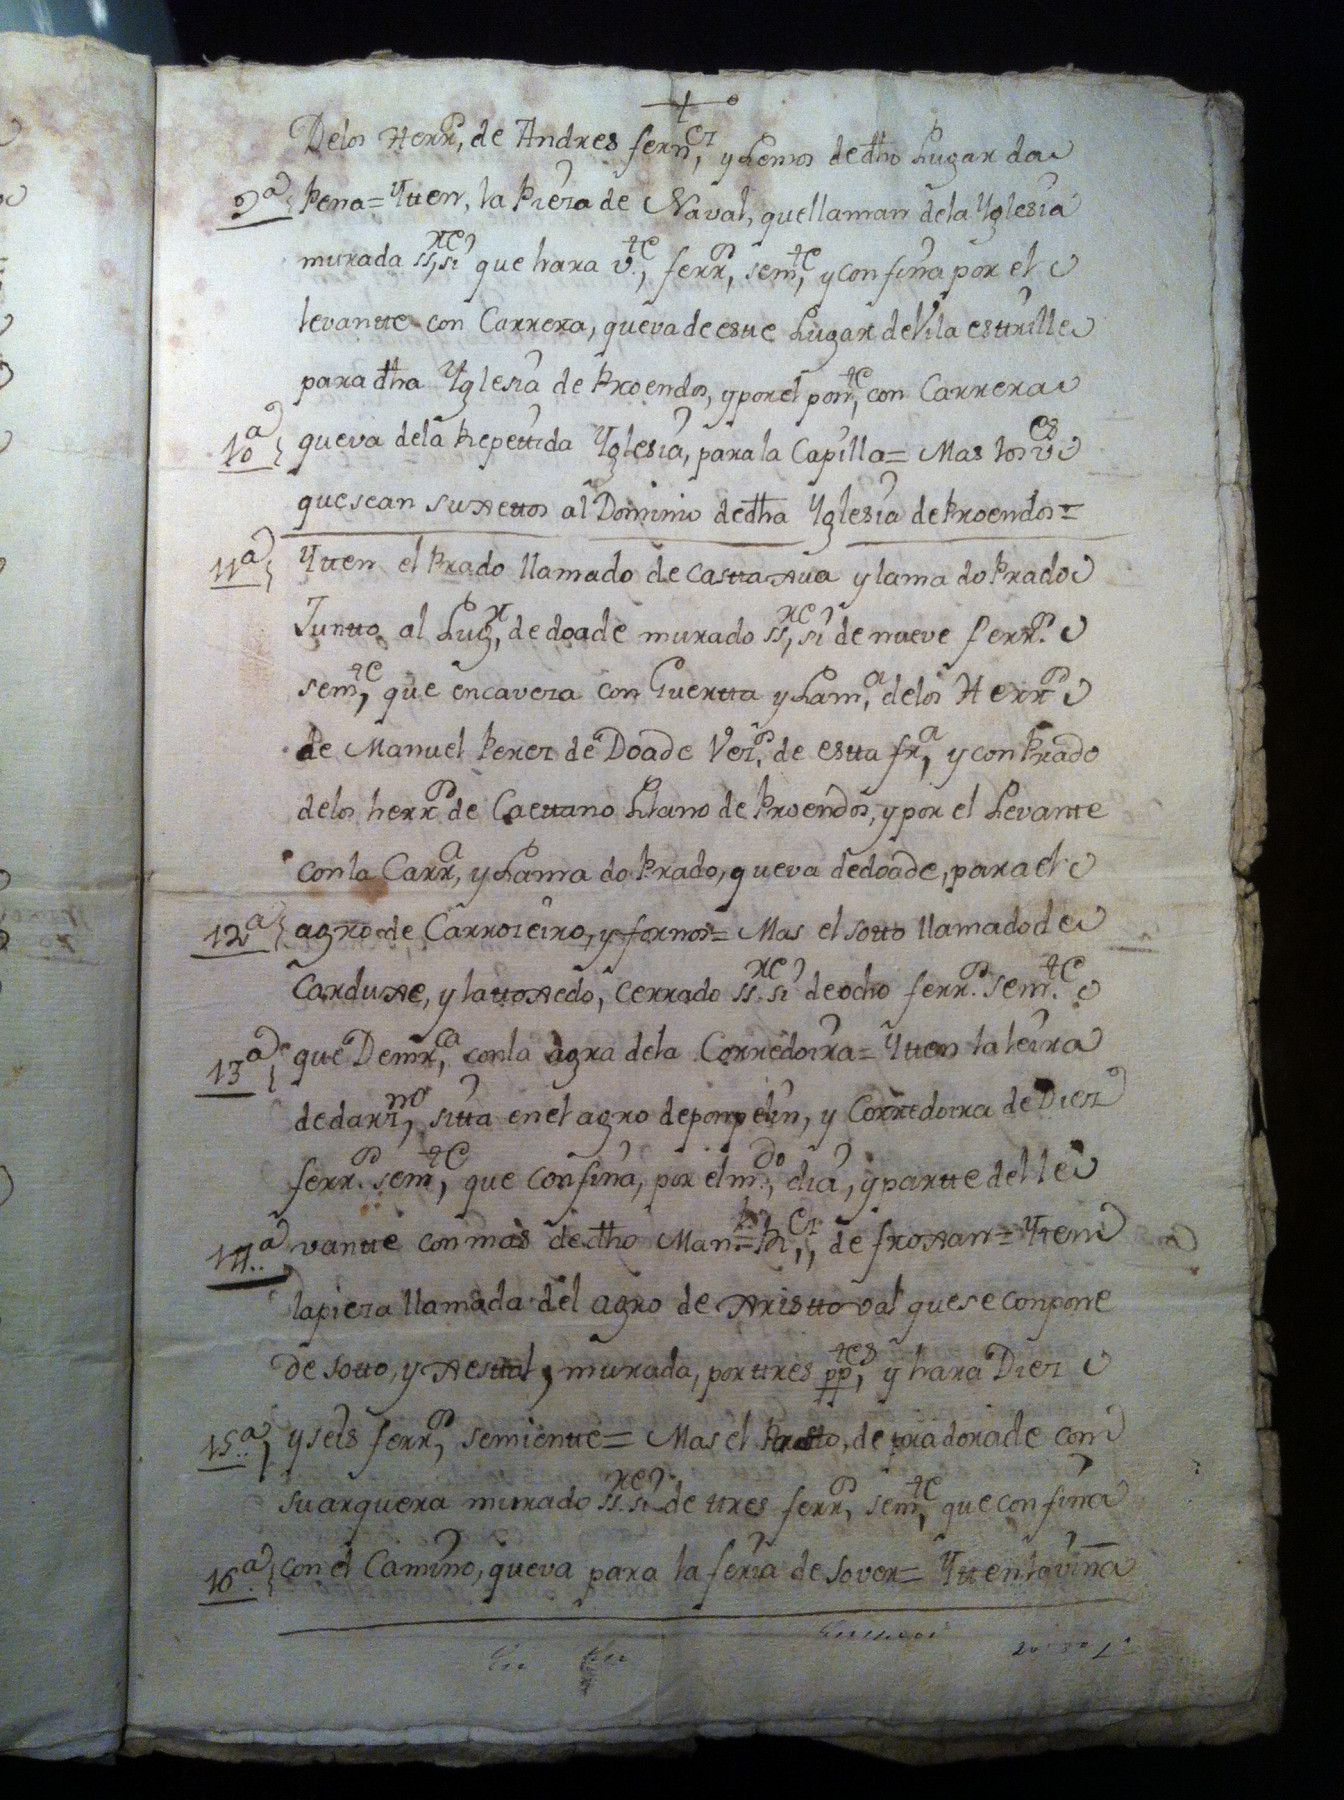 Delos Herrs, de Andres fernez, y Lemos dedho Lugar da
9a Pena= Ytten, la Pieza de Naval, quellaman dela Yglesia
murada ss,si que hara vte, ferrs, semte, y confina por el
levantte con Carrera, queva de estte Lugar de Vila esttrille
para dha Yglesia de Proendos, y por el ponte, con Carrera
10a queva dela Repettida Yglesia, para la Capilla= Mas los ves
que sean suxettos al Dominio dedha Yglesia de Proendos=
11a Ytten el Prado llamado de casttaxua y lama do Prado
Juntto al Lugr, de doade murado ss,si de nueve ferrs.
semte, que encaveza con Guertta y Lama, delos Herrs
de Manuel Perez de Doade Vezs, de estta fra, y con Prado
delos herrs de Caettano Llano de Proendos, y por el Levante
con la Carra, y Lama do Prado, queva dedoade, para el
12a agro de Carrozeiro, y fornos= Mas el sotto llamado de
Carduxe, y lattoxedo, cerrado ss.si de ocho ferrs. semte.
13a que Demrca, con la agra dela Corredoira= Ytten la leira
dedarzno, sitta en el agro depompelin, y Corredoira de Diez
ferrs. semte, que confina, por el mdo, dia, y partte del le
14a vantte con mas de dho Manl= Rz, de froxan= Yttem
la pieza llamada del agro de Aristtoval que se conpone
de Sotto, y xesttal, murada, por ttres pptes, y hara Diez
15a y seis ferrs, semientte= Mas el Prado, de pradorade con
su arquera murado ss.si de ttres ferrs, semte, que confina
16a con el Camino, queva para la feria de Sover= Ytten la viña